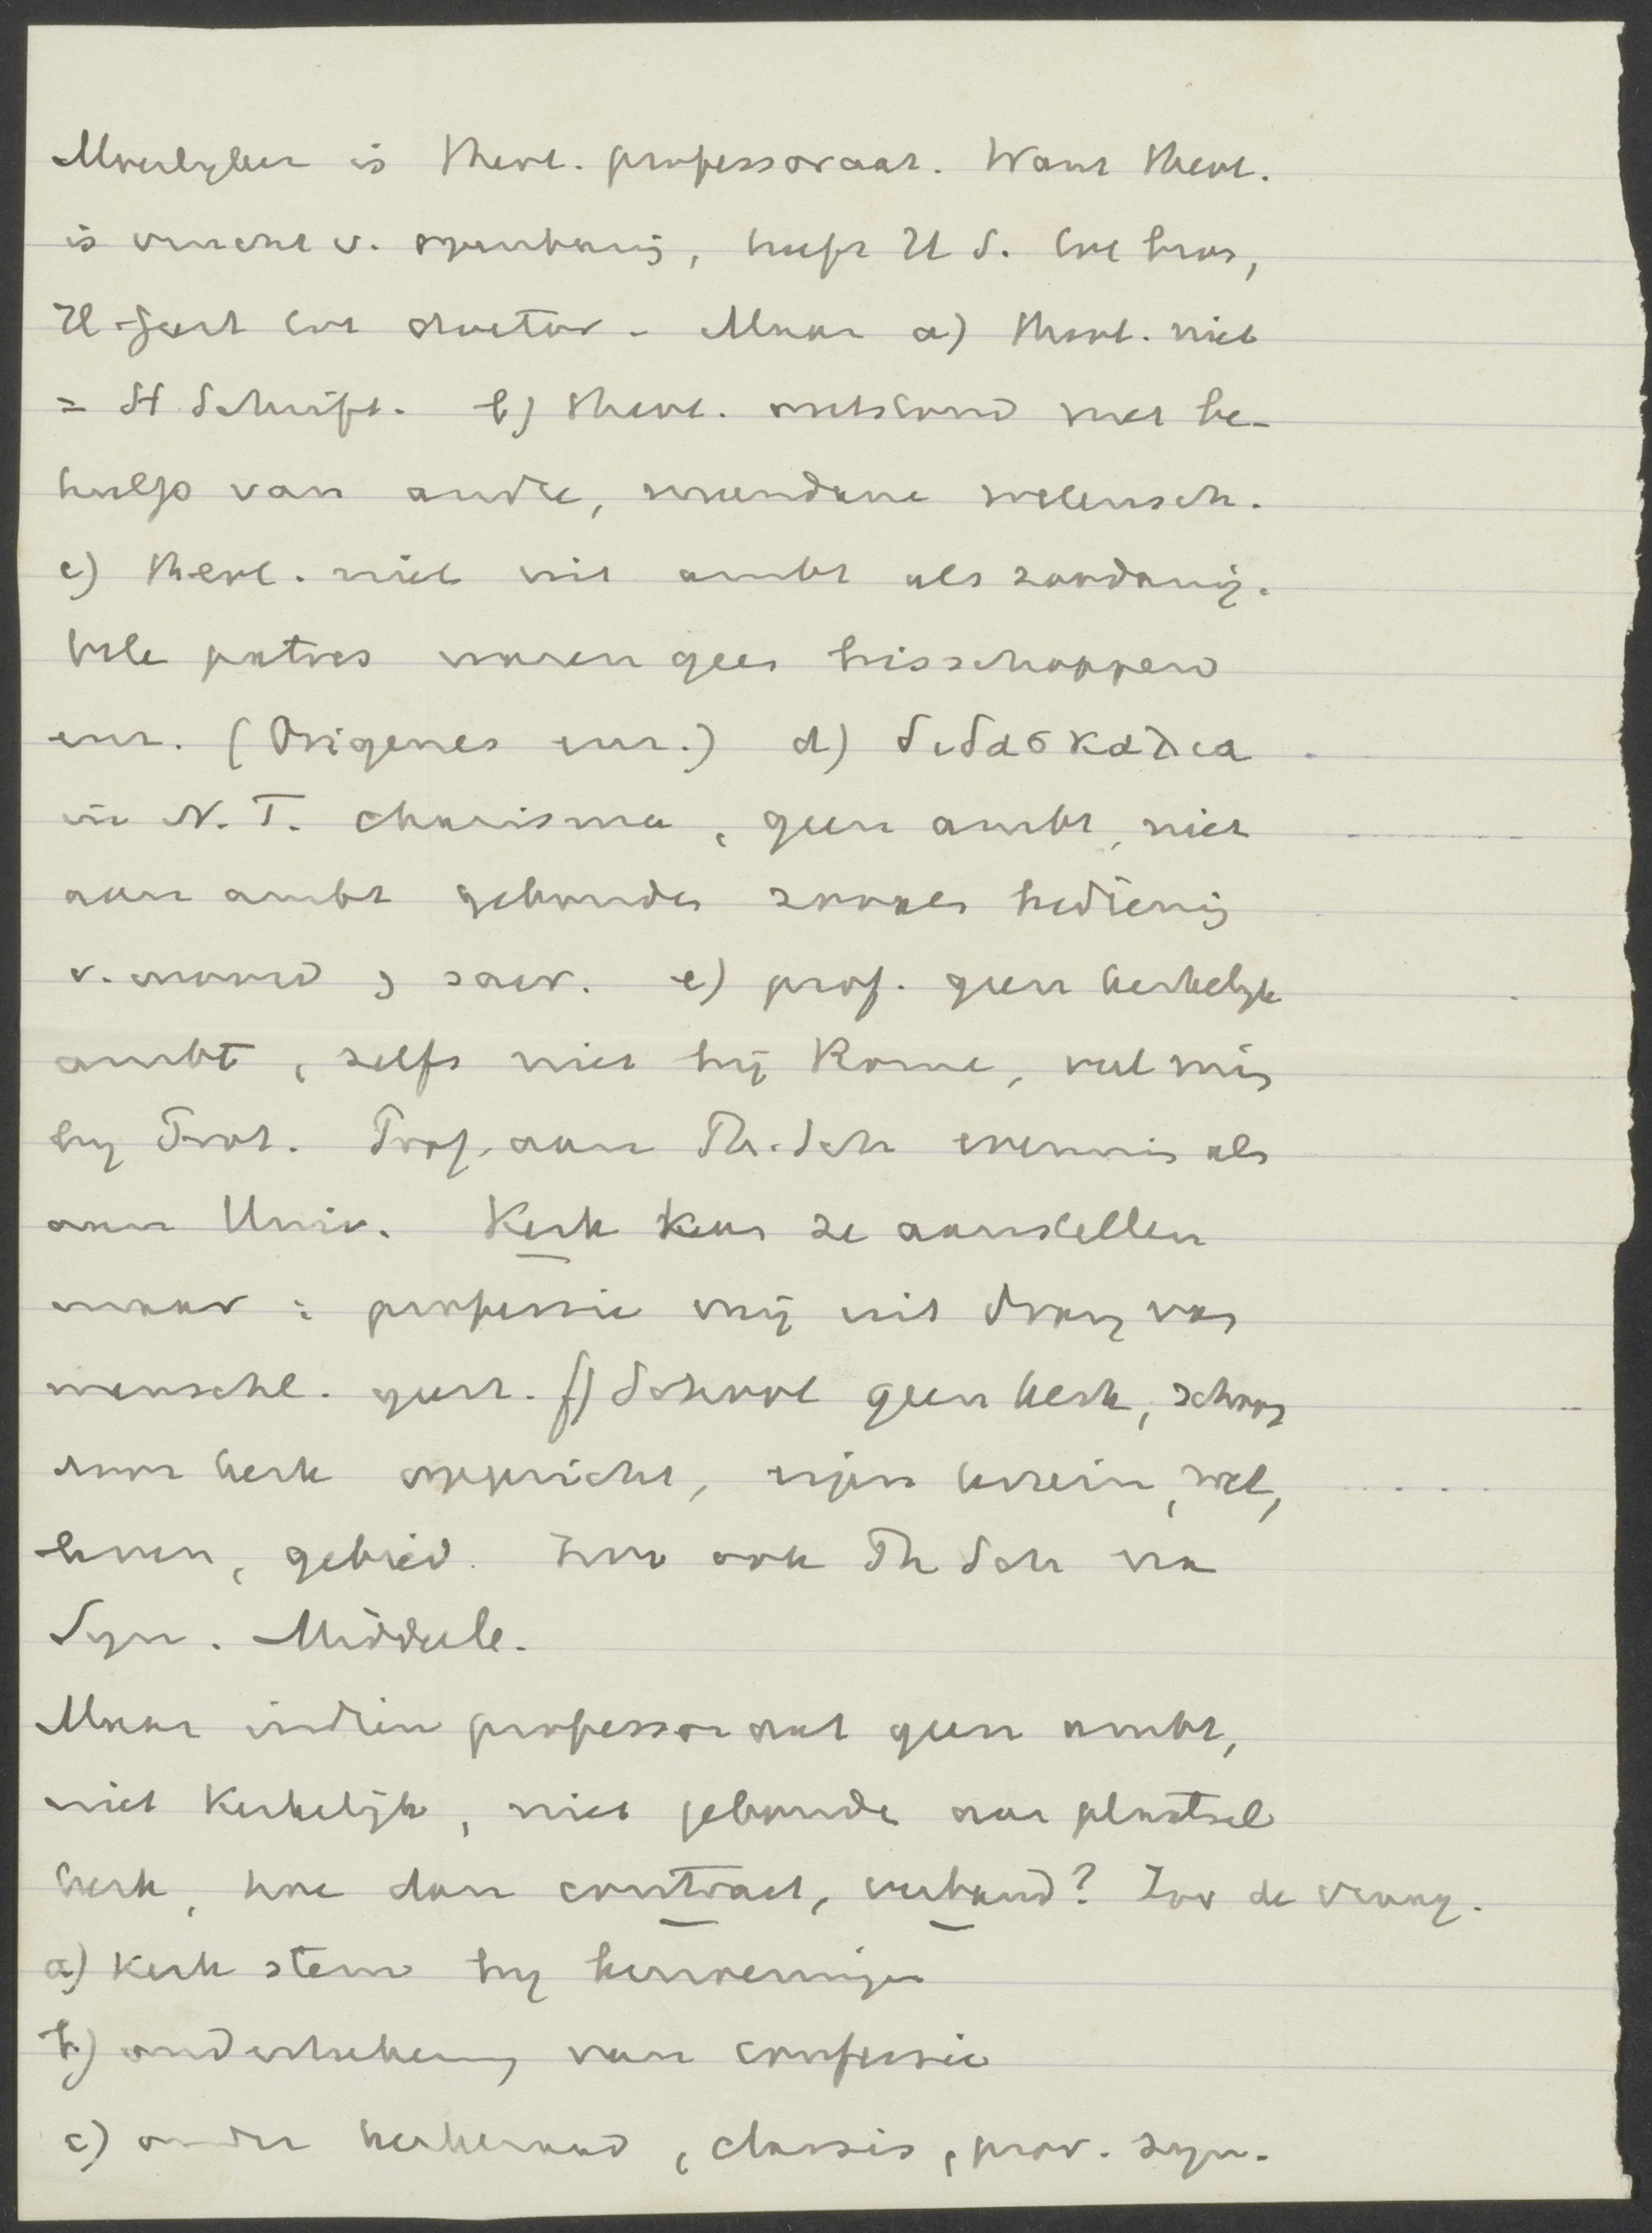 Moeilyker is theol. professoraat. Want theol.
is vrucht v. openbaring, heeft H S. tot bron,
H Geest tot doctor. Maar a) theol. niet
= H Schrift. b) theol. ontstond met be-
hulp van andre, mundane wetensch.
c) theol. niet uit ambt als zoodanig.
Vele patres waren geen bisschoppen
enz. (Origenes enz.) d) διδασκαλια
in N. T. charisma, geen ambt, niet
aan ambt gebonden zooals bediening
v. woord & sacr. e) prof. geen kerkelyk
ambt, zelfs niet bij Rome, veel min
by Prot. Prof. aan Th. Sch evenmin als
aan Univ. Kerk kan ze aanstellen
maar : professie vrij uit drang van
menschl. geest. f) School geen kerk, schoon
door kerk opgericht, eigen terrein, wet,
leven, gebied. Zoo ook Th Sch na
Syn. Middelb.
Maar indien professoraat geen ambt,
niet Kerkelijk, niet gebonden aan plaatsel
kerk, hoe dan contract, verband? Zoo de vraag.
a) Kerk stem by benoemingen
b) onderteekening van confessie
c) onder kerkeraad, classis, prov. syn.